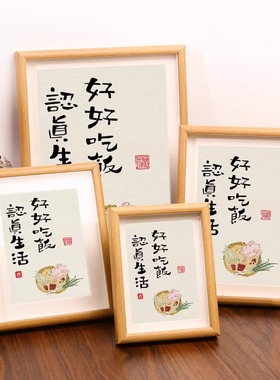 好好吃飯
認真生活
好好吃飯
認真生活
好好吃飯
認真生活
好好吃飯
認真生活